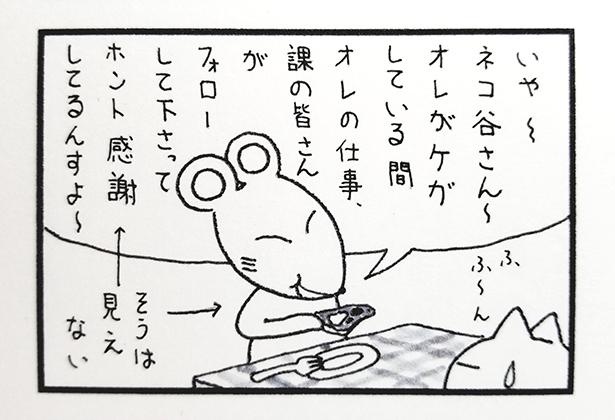 いや～
ネコ谷さん～
オレがケガ
している間
オレの仕事、
課の皆さん
が
フォロー
して下さって
ホント感謝
してるんすよ～
ふ
ふ～ん
そうは
見え
ない